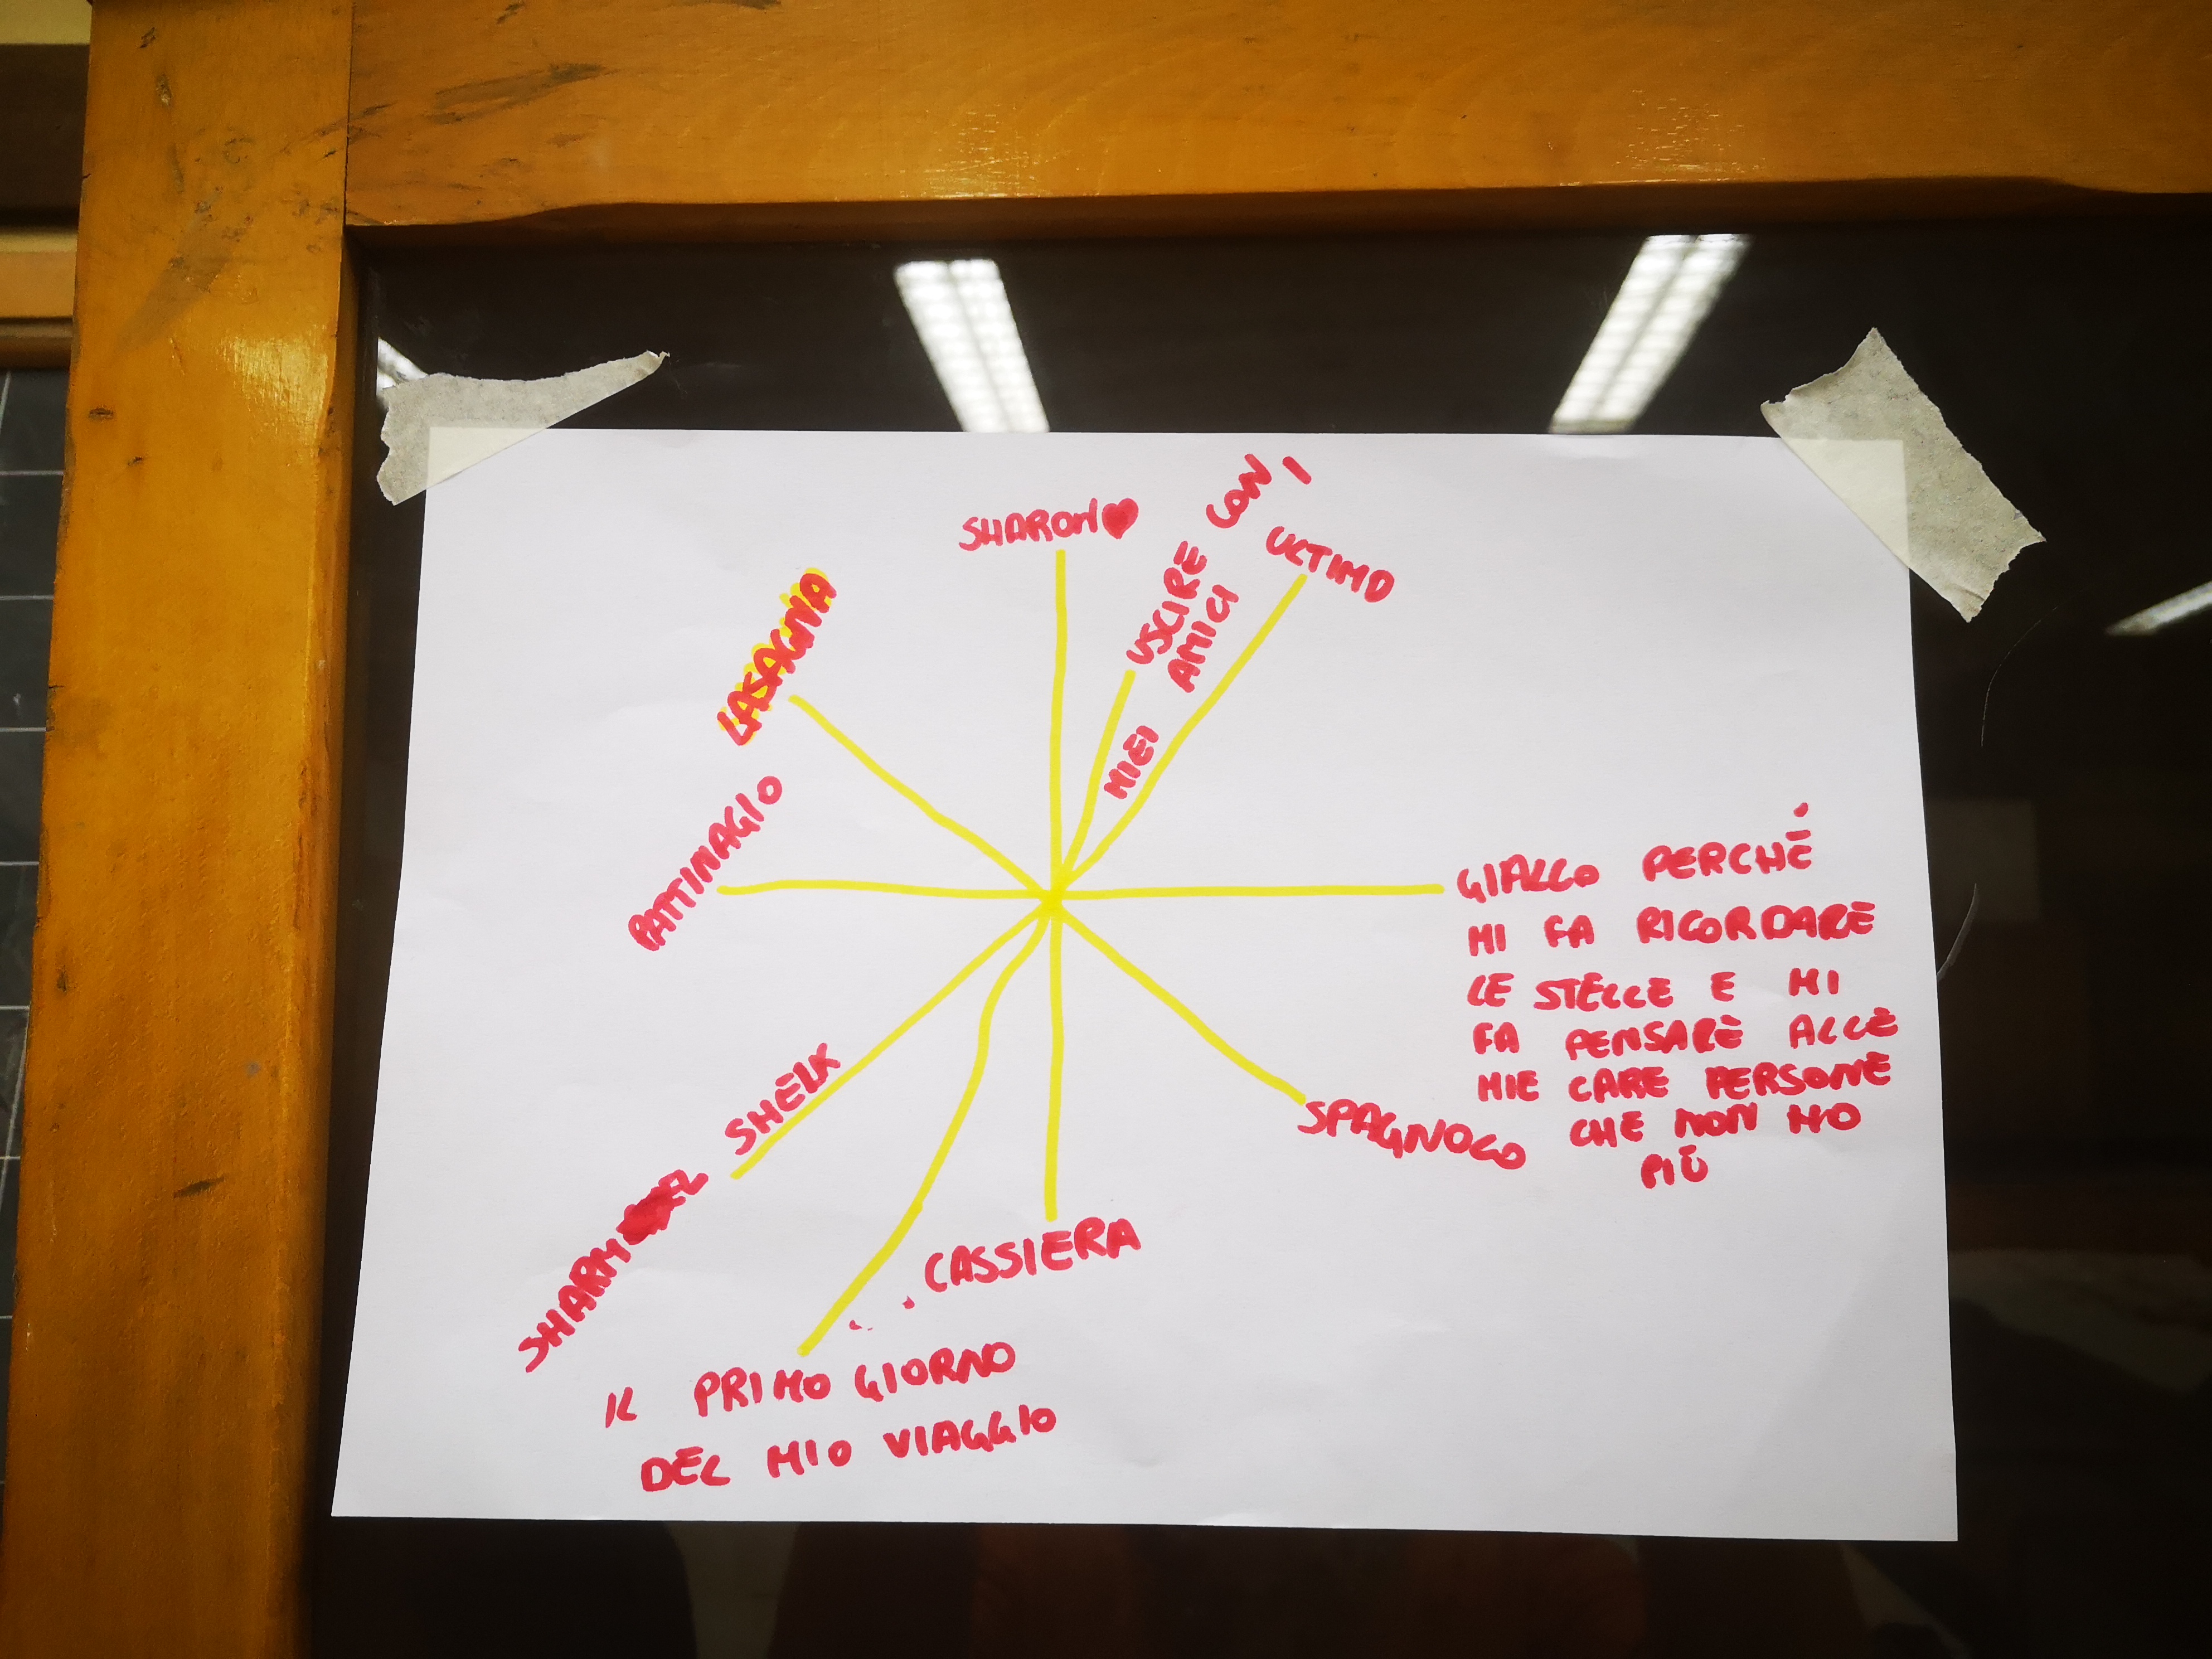 SHARON
USCIRE CON I
MIEI AMICI
ULTIMO
LASAGNA
PATTINAGIO
GIALLO PERCHÉ
MI FA RICORDARE
LE STELLE E MI
FA PENSARE ALLE
MIE CARE PERSONE
CHE NON HO
PIÙ
SPAGNOLO
CASSIERA
IL PRIMO GIORNO
DEL MIO VIAGGIO
SHARM EL SHEIK